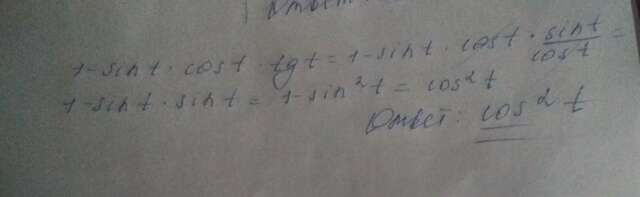 Ответ:
1-sin t · cos t · tg t = 1-sin t · cos t · sin t / cos t =
1-sin t · sin t = 1-sin² t = cos² t
Ответ: cos² t